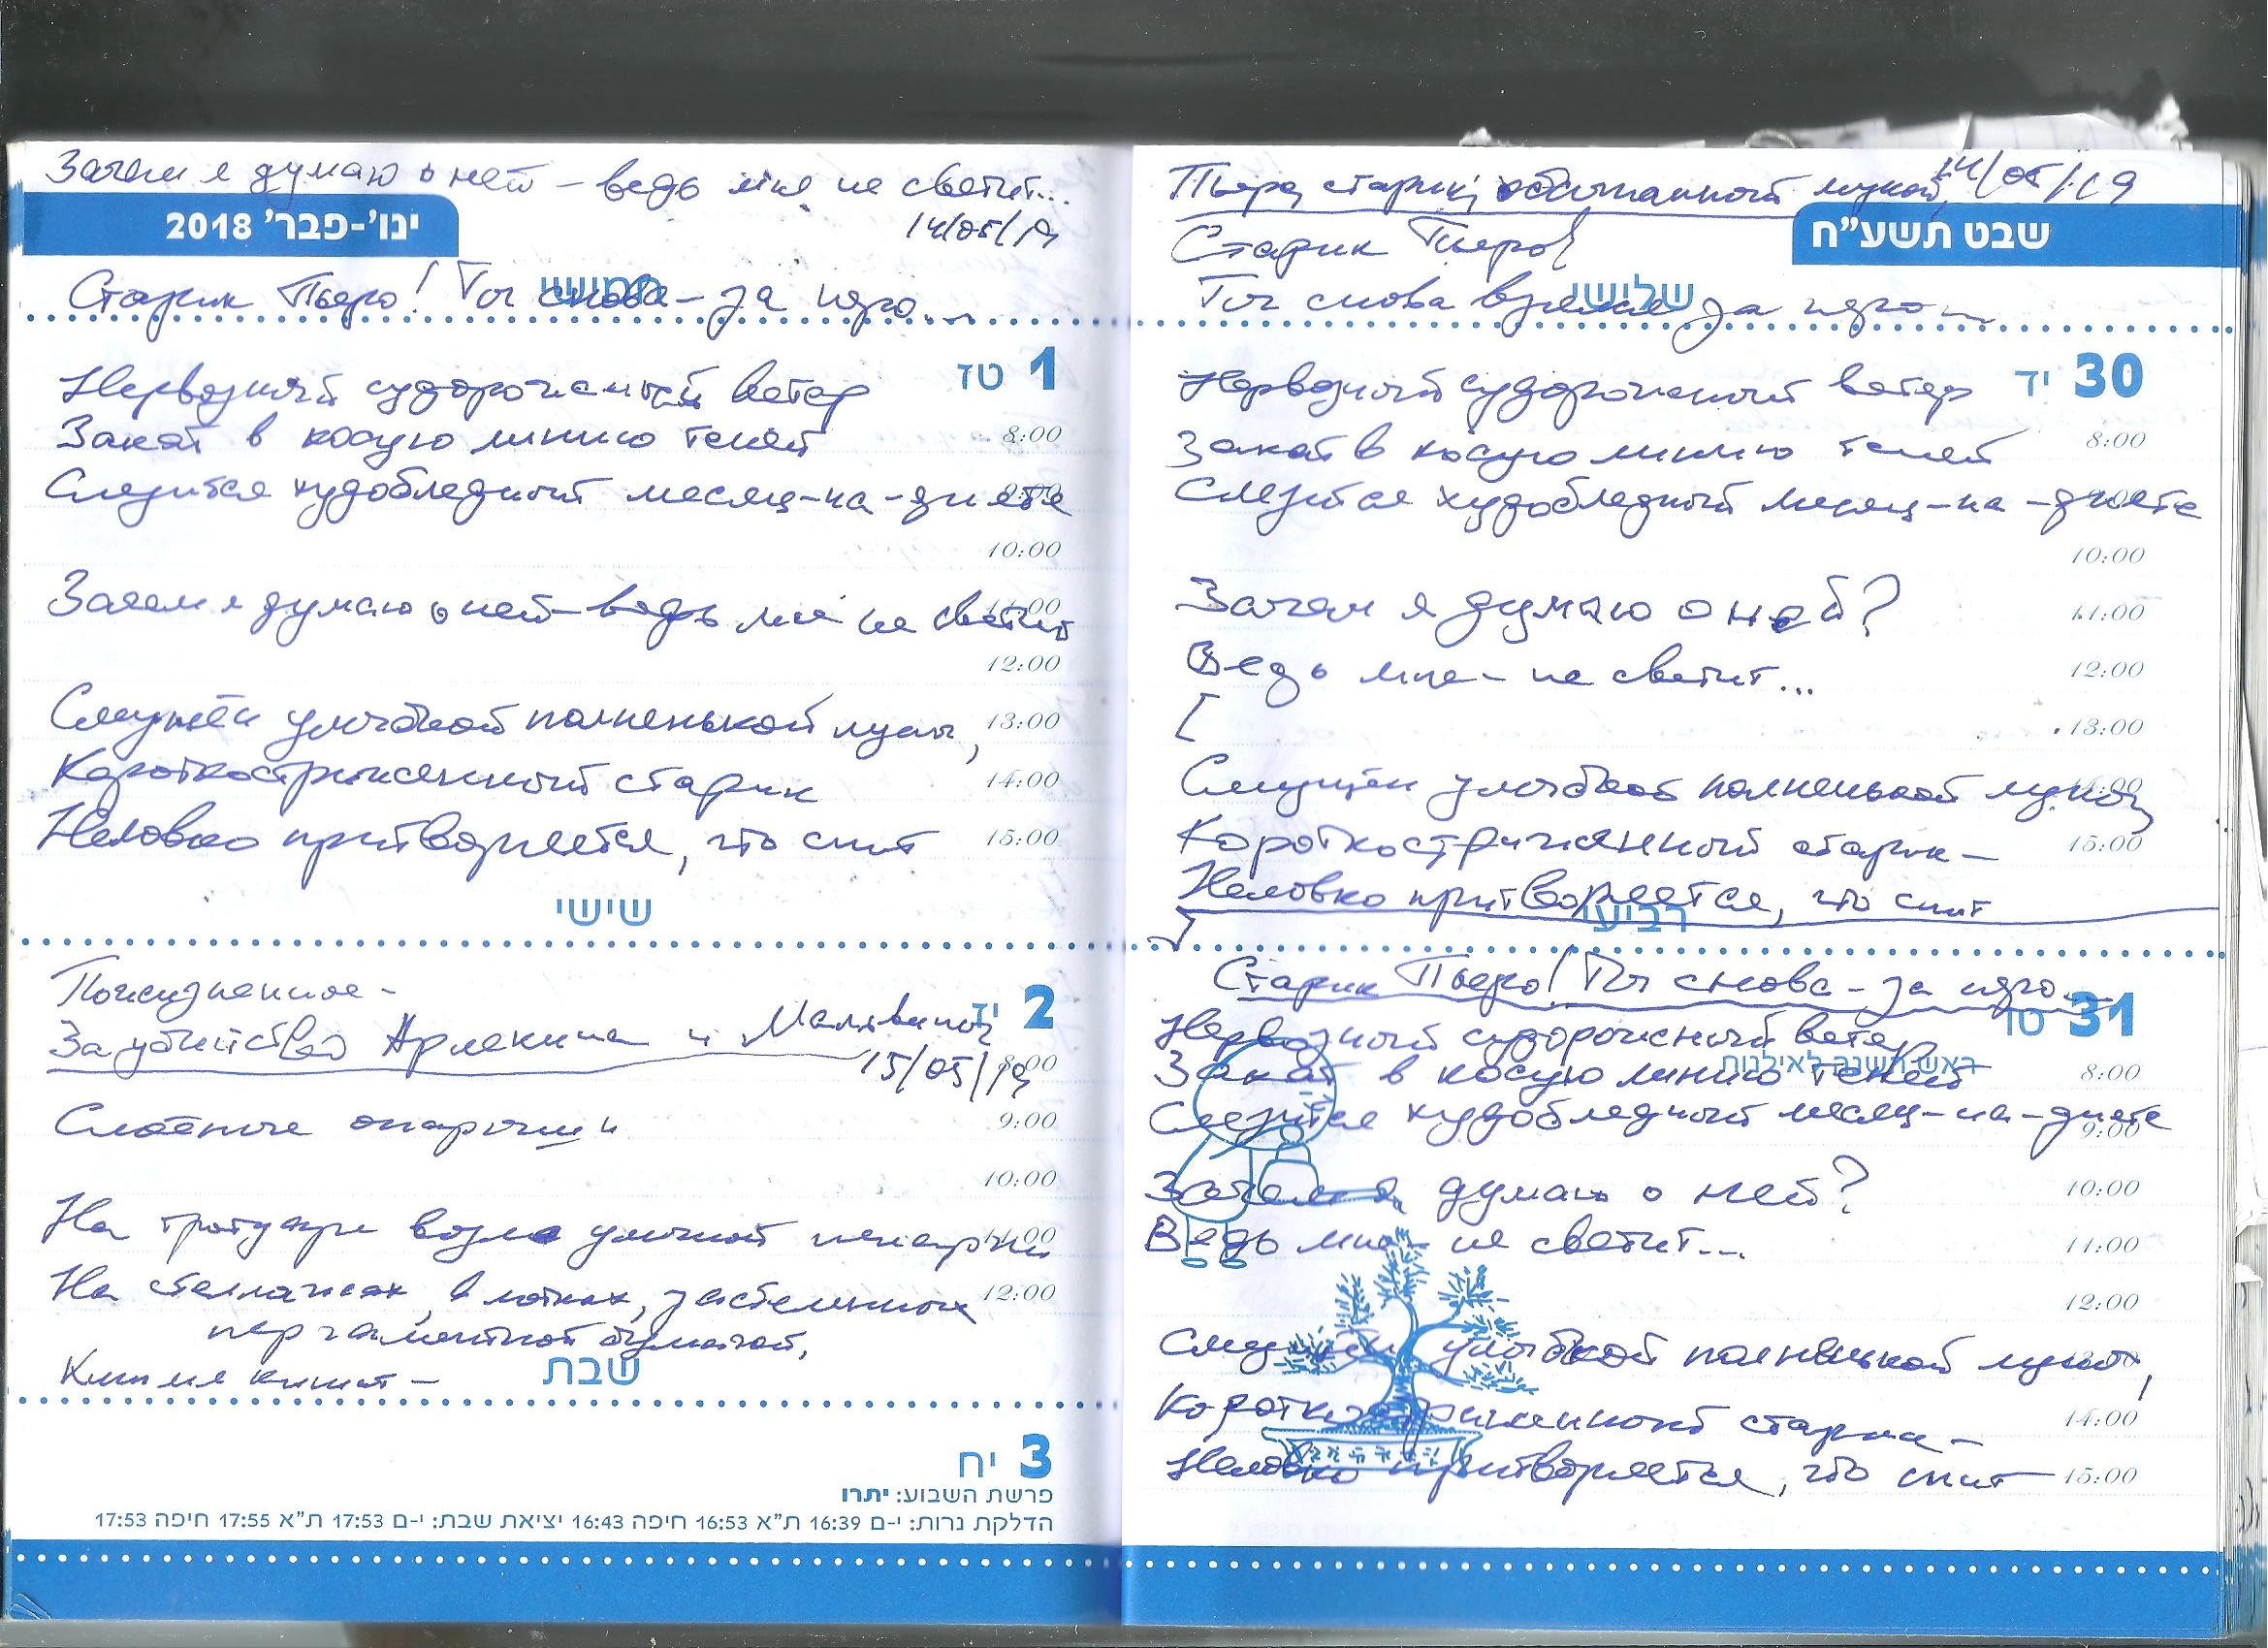 Зачем я думаю о ней – ведь мне не светит...
14/05/19
ינו'-פבר' 2018
חמישי
Старик Пьеро! Ты снова – за перо...
1 טז
Нервозный судорожный ветер
Закат в косую линию теней
8:00
Слезится худобледный месяц-на-диете
9:00
10:00
Зачем я думаю о ней – ведь мне не светит
11:00
12:00
Смущён улыбкой полненькой луны,
13:00
Короткостриженный старик
14:00
Неловко притворяется, что спит
15:00
שישי
Пожизненное –
2 יז
За убийство Арлекина и Мальвины
8:00
15/05/19
Слоёные
9:00
10:00
На тротуаре возле уличной пекарни
11:00
На стеллажах, в лотках, застеленных
12:00
пергаментной бумагой,
שבת
3 יח
פרשת השבוע: יתרו
הדלקת נרות: י-ם 16:39 ת"א 16:53 חיפה 16:43 יציאת שבת: י-ם 17:53 ת"א 17:55 חיפה 17:53
Пьеро, старик, обсыпанный мукой, 14/05/19
שבט תשע"ח
Старик Пьеро!
שלישי
Ты снова взялся за перо...
30 יד
Нервозный судорожный ветер
Закат в косую линию теней
8:00
Слезится худобледный месяц-на-диете
9:00
10:00
Зачем я думаю о ней?
11:00
Ведь мне – не светит...
12:00
[
13:00
Смущён улыбкой полненькой луны,
14:00
Короткостриженный старик –
15:00
Неловко притворяется, что спит
רביעי
Старик Пьеро! Ты снова – за перо...
31 טו
Нервозный судорожный ветер
ראש השנה לאילנות
Закат в косую линию теней
8:00
Слезится худобледный месяц-на-диете
9:00
Зачем я думаю о ней?
10:00
Ведь мне – не светит...
11:00
12:00
Смущён улыбкой полненькой луны,
13:00
Короткостриженный старик –
14:00
Неловко притворяется, что спит
15:00